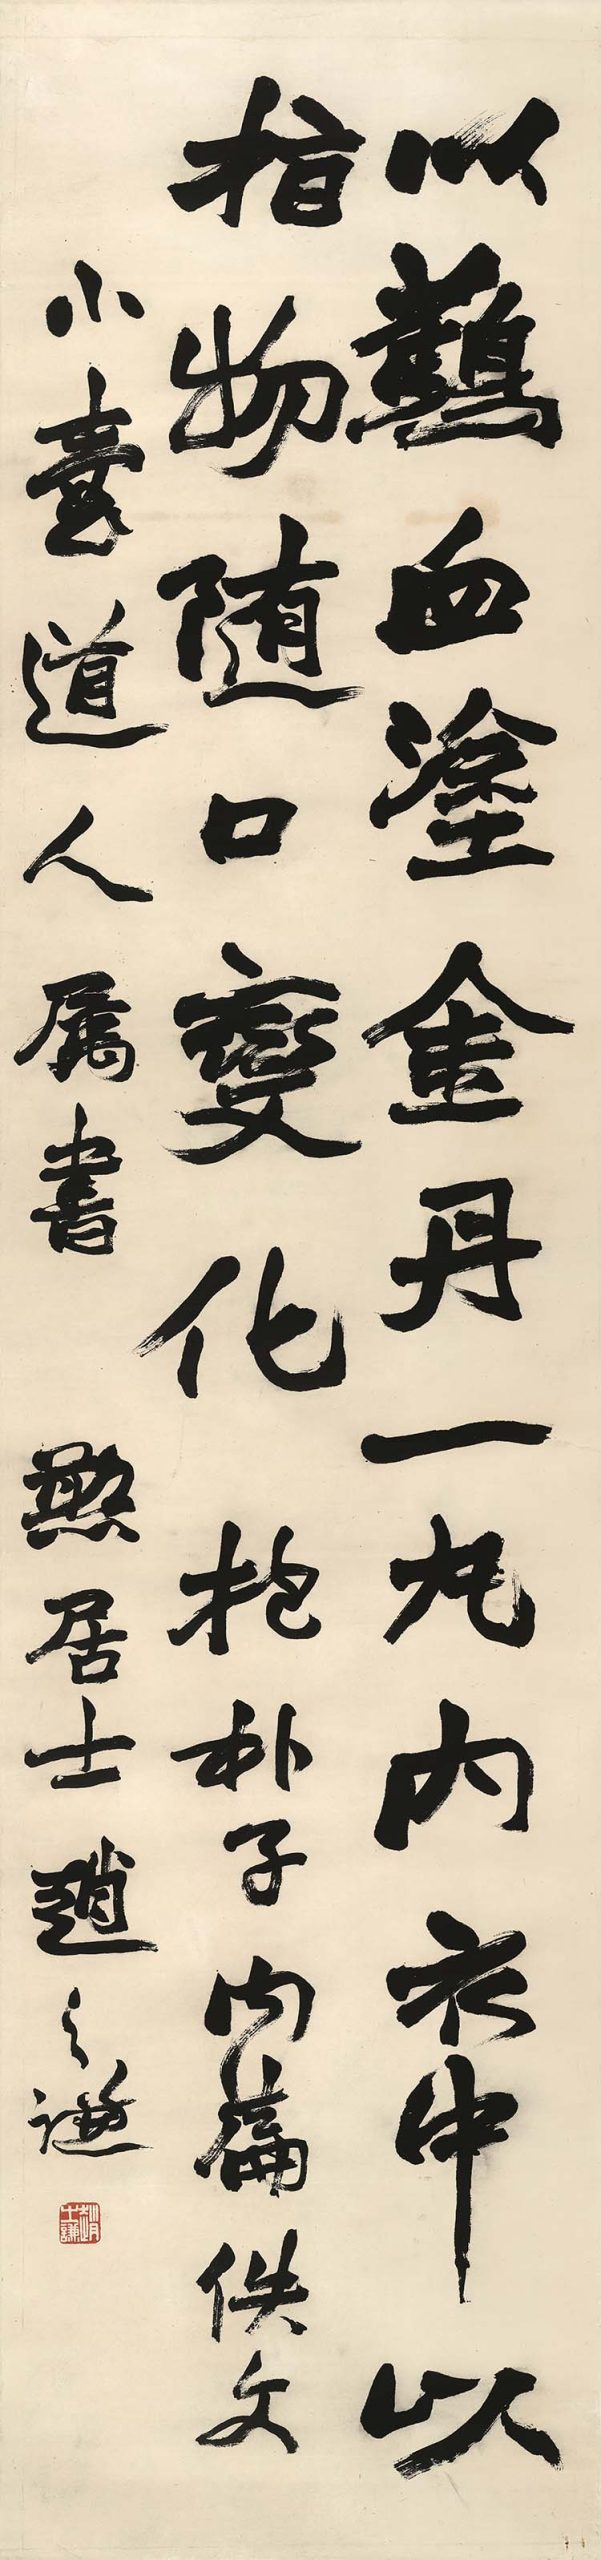 以鸛血塗金丹一丸內衣中以
指物随口變化 抱朴子内篇佚文
小道人屬書 憨居士趙之謙
趙之謙